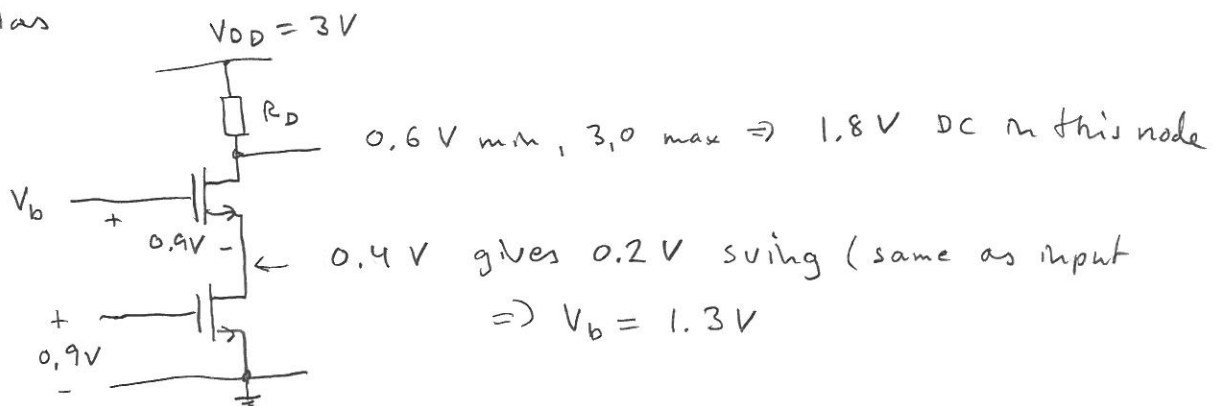 VDD = 3V
RD
0.6 V min, 3,0 max ⇒ 1.8V DC in this node
Vb
+
0.9V -
← 0.4 V gives 0.2 V swing (same as input
⇒ Vb = 1.3V
+
0,9V
-